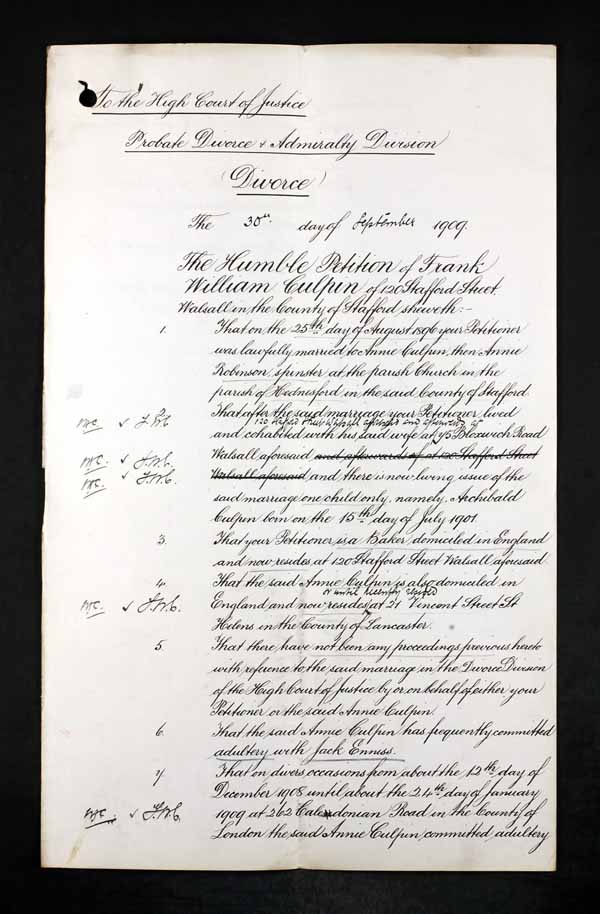 To the High Court of Justice
Probate Divorce & Admiralty Division
(Divorce)
The 30th day of September 1909.
The Humble Petition of Frank
William Culpin of 120 Stafford Street
Walsall in the County of Stafford sheweth:-
1. That on the 25th day of August 1896 your Petitioner
was lawfully married to Annie Culpin, then Annie
Robinson, spinster at the parish Church in the
parish of Hednesford in the said County of Stafford
That after the said marriage your Petitioner lived
120 Stafford Street Walsall aforesaid and afterwards at
and cohabited with his said wife at 45 Bloxwich Road
Walsall aforesaid and afterwards at 120 Stafford Street
Walsall aforesaid and there is now living issue of the
said marriage one child only, namely, Archibald
Culpin born on the 15th day of July 1901.
3. That your Petitioner is a Baker, domiciled in England
and now resides at 120 Stafford Street Walsall aforesaid.
4. That the said Annie Culpin is also domiciled in
or until recently resided
England and now resides at 21 Vincent Street St
Helens in the County of Lancaster.
5. That there have not been any proceedings previous hereto
with reference to the said marriage in the Divorce Division
of the High Court of Justice by or on behalf of either your
Petitioner or the said Annie Culpin.
6. That the said Annie Culpin has frequently committed
adultery with Jack Enniss.
7. That on divers occasions from about the 12th day of
December 1908 until about the 24th day of January
1909 at 262 Caledonian Road in the County of
London the said Annie Culpin committed adultery